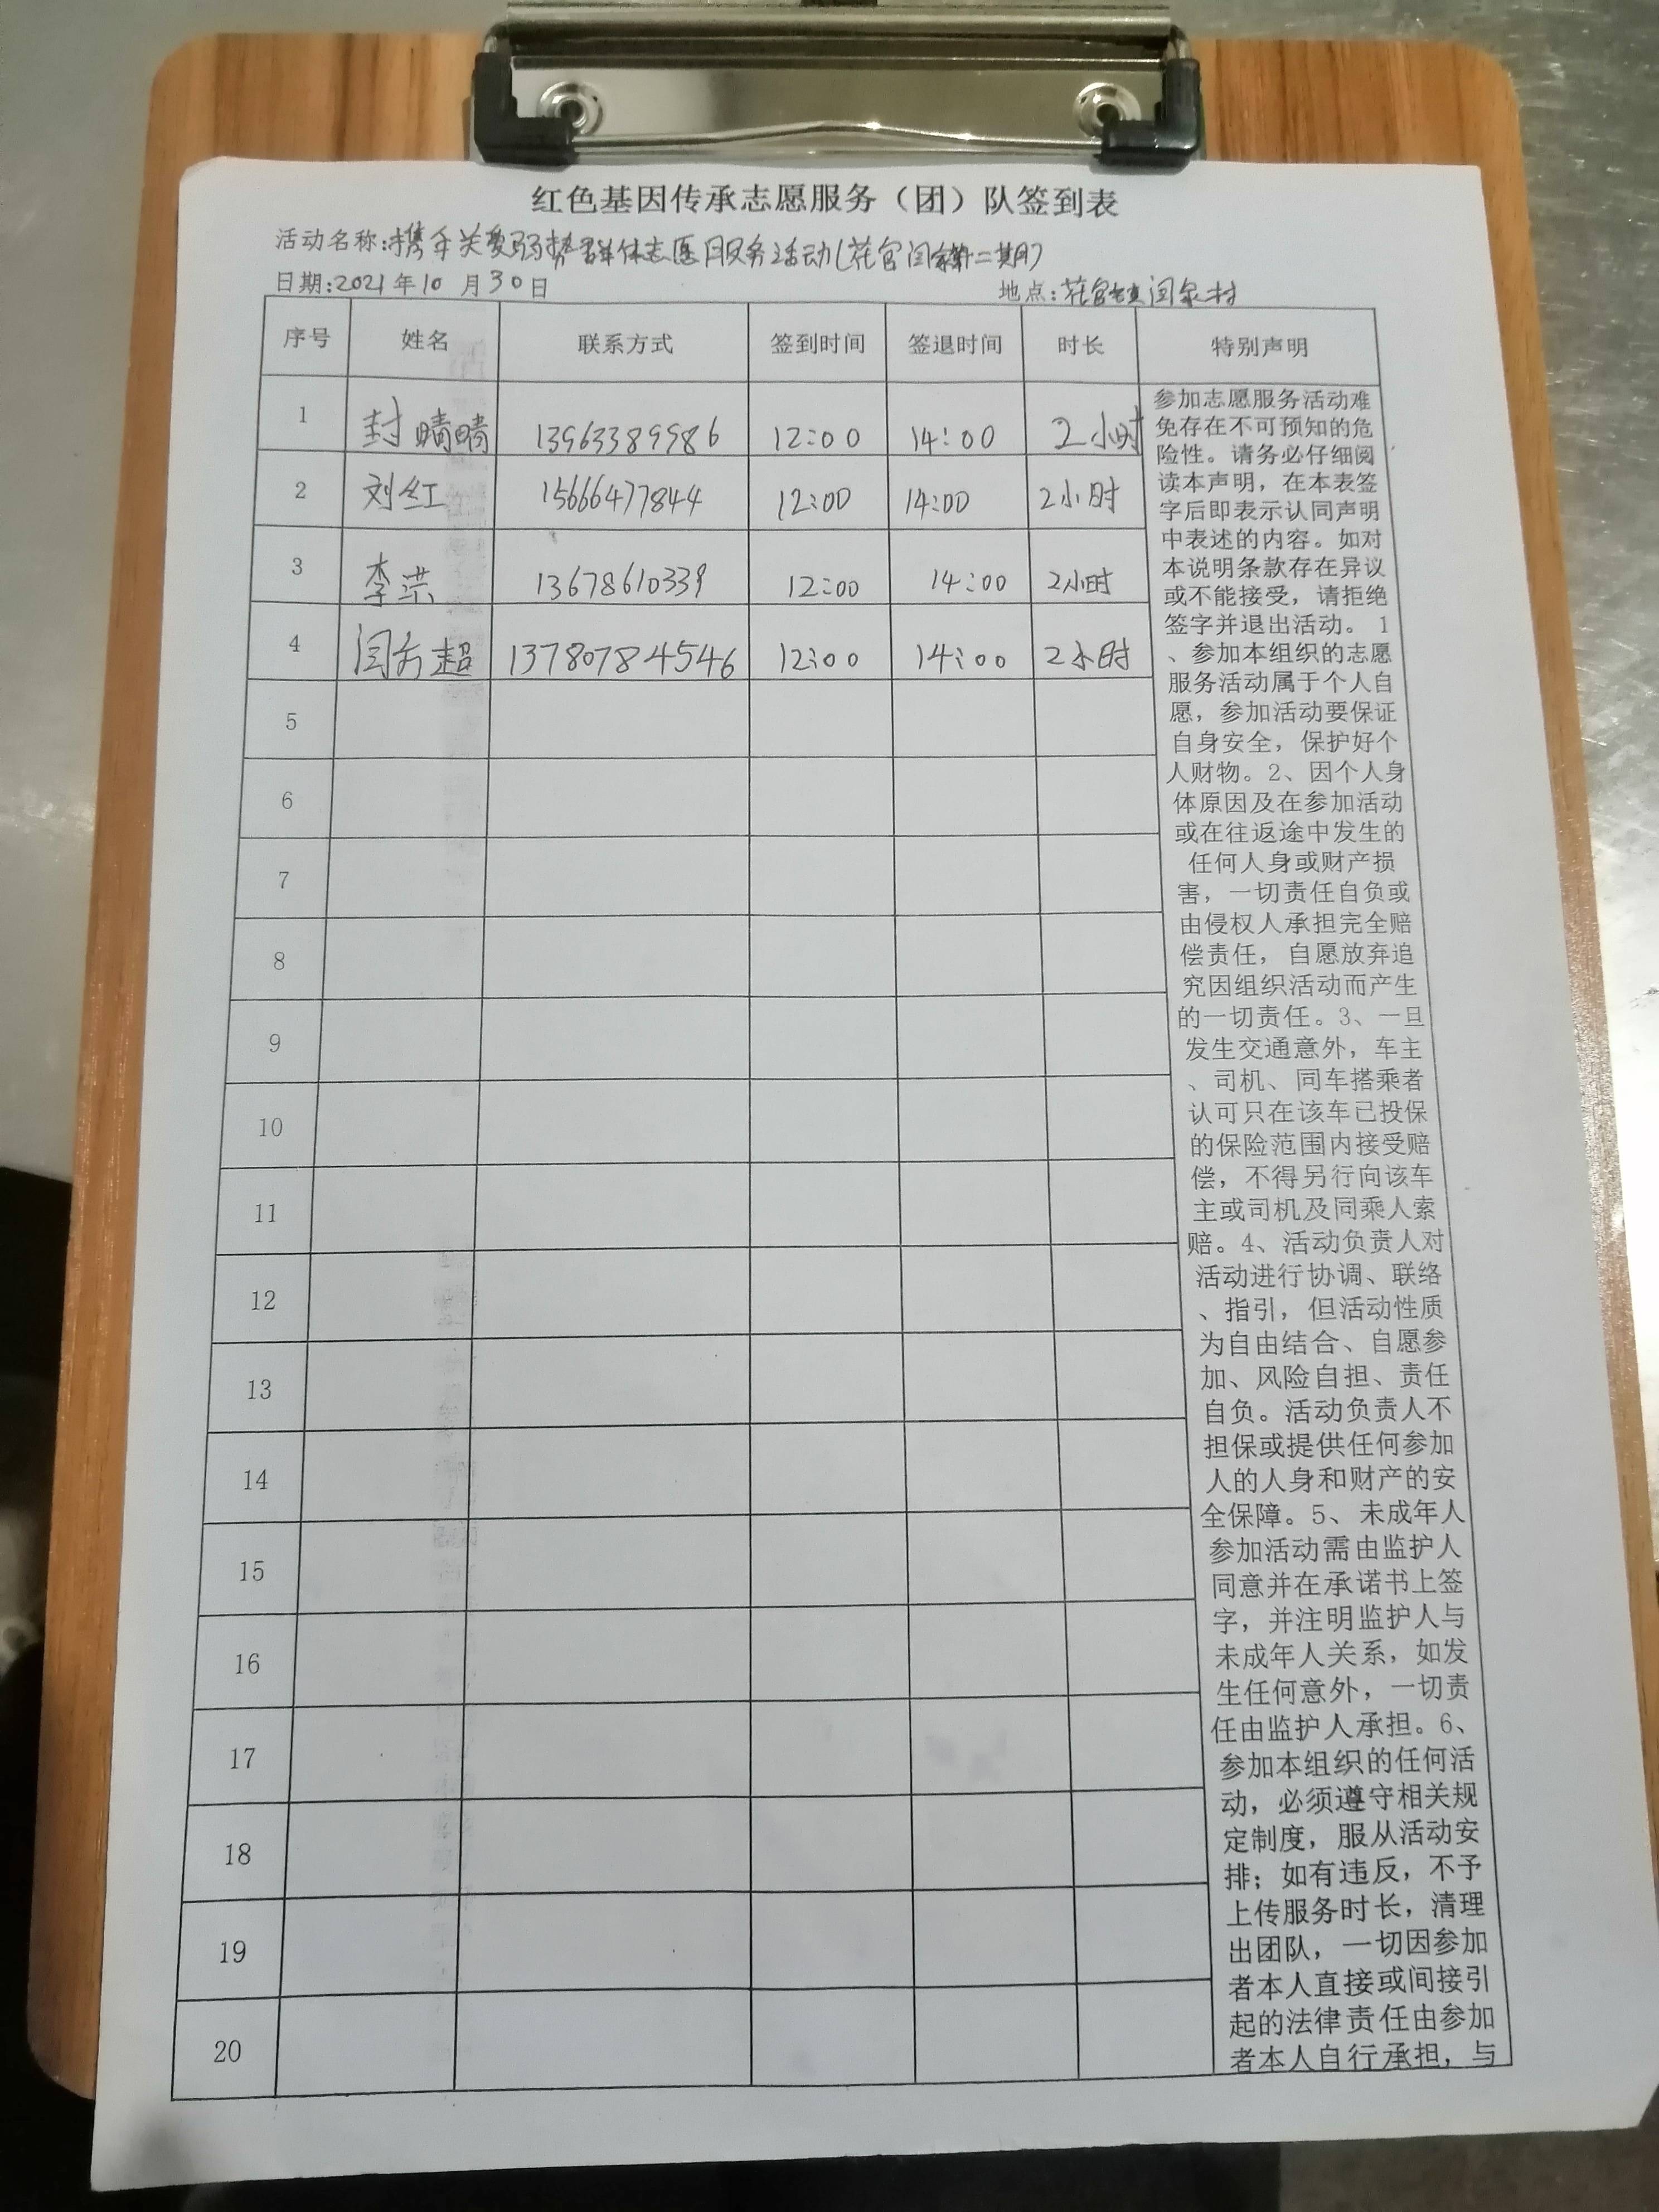 红色基因传承志愿服务（团）队签到表
活动名称:携手关爱弱势群体志愿服务活动(花官闫家第二期)
日期:2021年10月30日 地点:花官镇闫家村
序号 姓名 联系方式 签到时间 签退时间 时长 特别声明
1 封晴晴 13963389986 12:00 14:00 2小时
2 刘红 15666477844 12:00 14:00 2小时
3 李荣 13678610339 12:00 14:00 2小时
4 闫秀超 13780784546 12:00 14:00 2小时
5
6
7
8
9
10
11
12
13
14
15
16
17
18
19
20
参加志愿服务活动难
免存在不可预知的危
险性。请务必仔细阅
读本声明，在本表签
字后即表示认同声明
中表述的内容。如对
本说明条款存在异议
或不能接受，请拒绝
签字并退出活动。1
、参加本组织的志愿
服务活动属于个人自
愿，参加活动要保证
自身安全，保护好个
人财物。2、因个人身
体原因及在参加活动
或在往返途中发生的
任何人身或财产损
害，一切责任自负或
由侵权人承担完全赔
偿责任，自愿放弃追
究因组织活动而产生
的一切责任。3、一旦
发生交通意外，车主
、司机、同车搭乘者
认可只在该车已投保
的保险范围内接受赔
偿，不得另行向该车
主或司机及同乘人索
赔。4、活动负责人对
活动进行协调、联络
、指引，但活动性质
为自由结合、自愿参
加、风险自担、责任
自负。活动负责人不
担保或提供任何参加
人的人身和财产的安
全保障。5、未成年人
参加活动需由监护人
同意并在承诺书上签
字，并注明监护人与
未成年人关系，如发
生任何意外，一切责
任由监护人承担。6、
参加本组织的任何活
动，必须遵守相关规
定制度，服从活动安
排；如有违反，不予
上传服务时长，清理
出团队，一切因参加
者本人直接或间接引
起的法律责任由参加
者本人自行承担，与